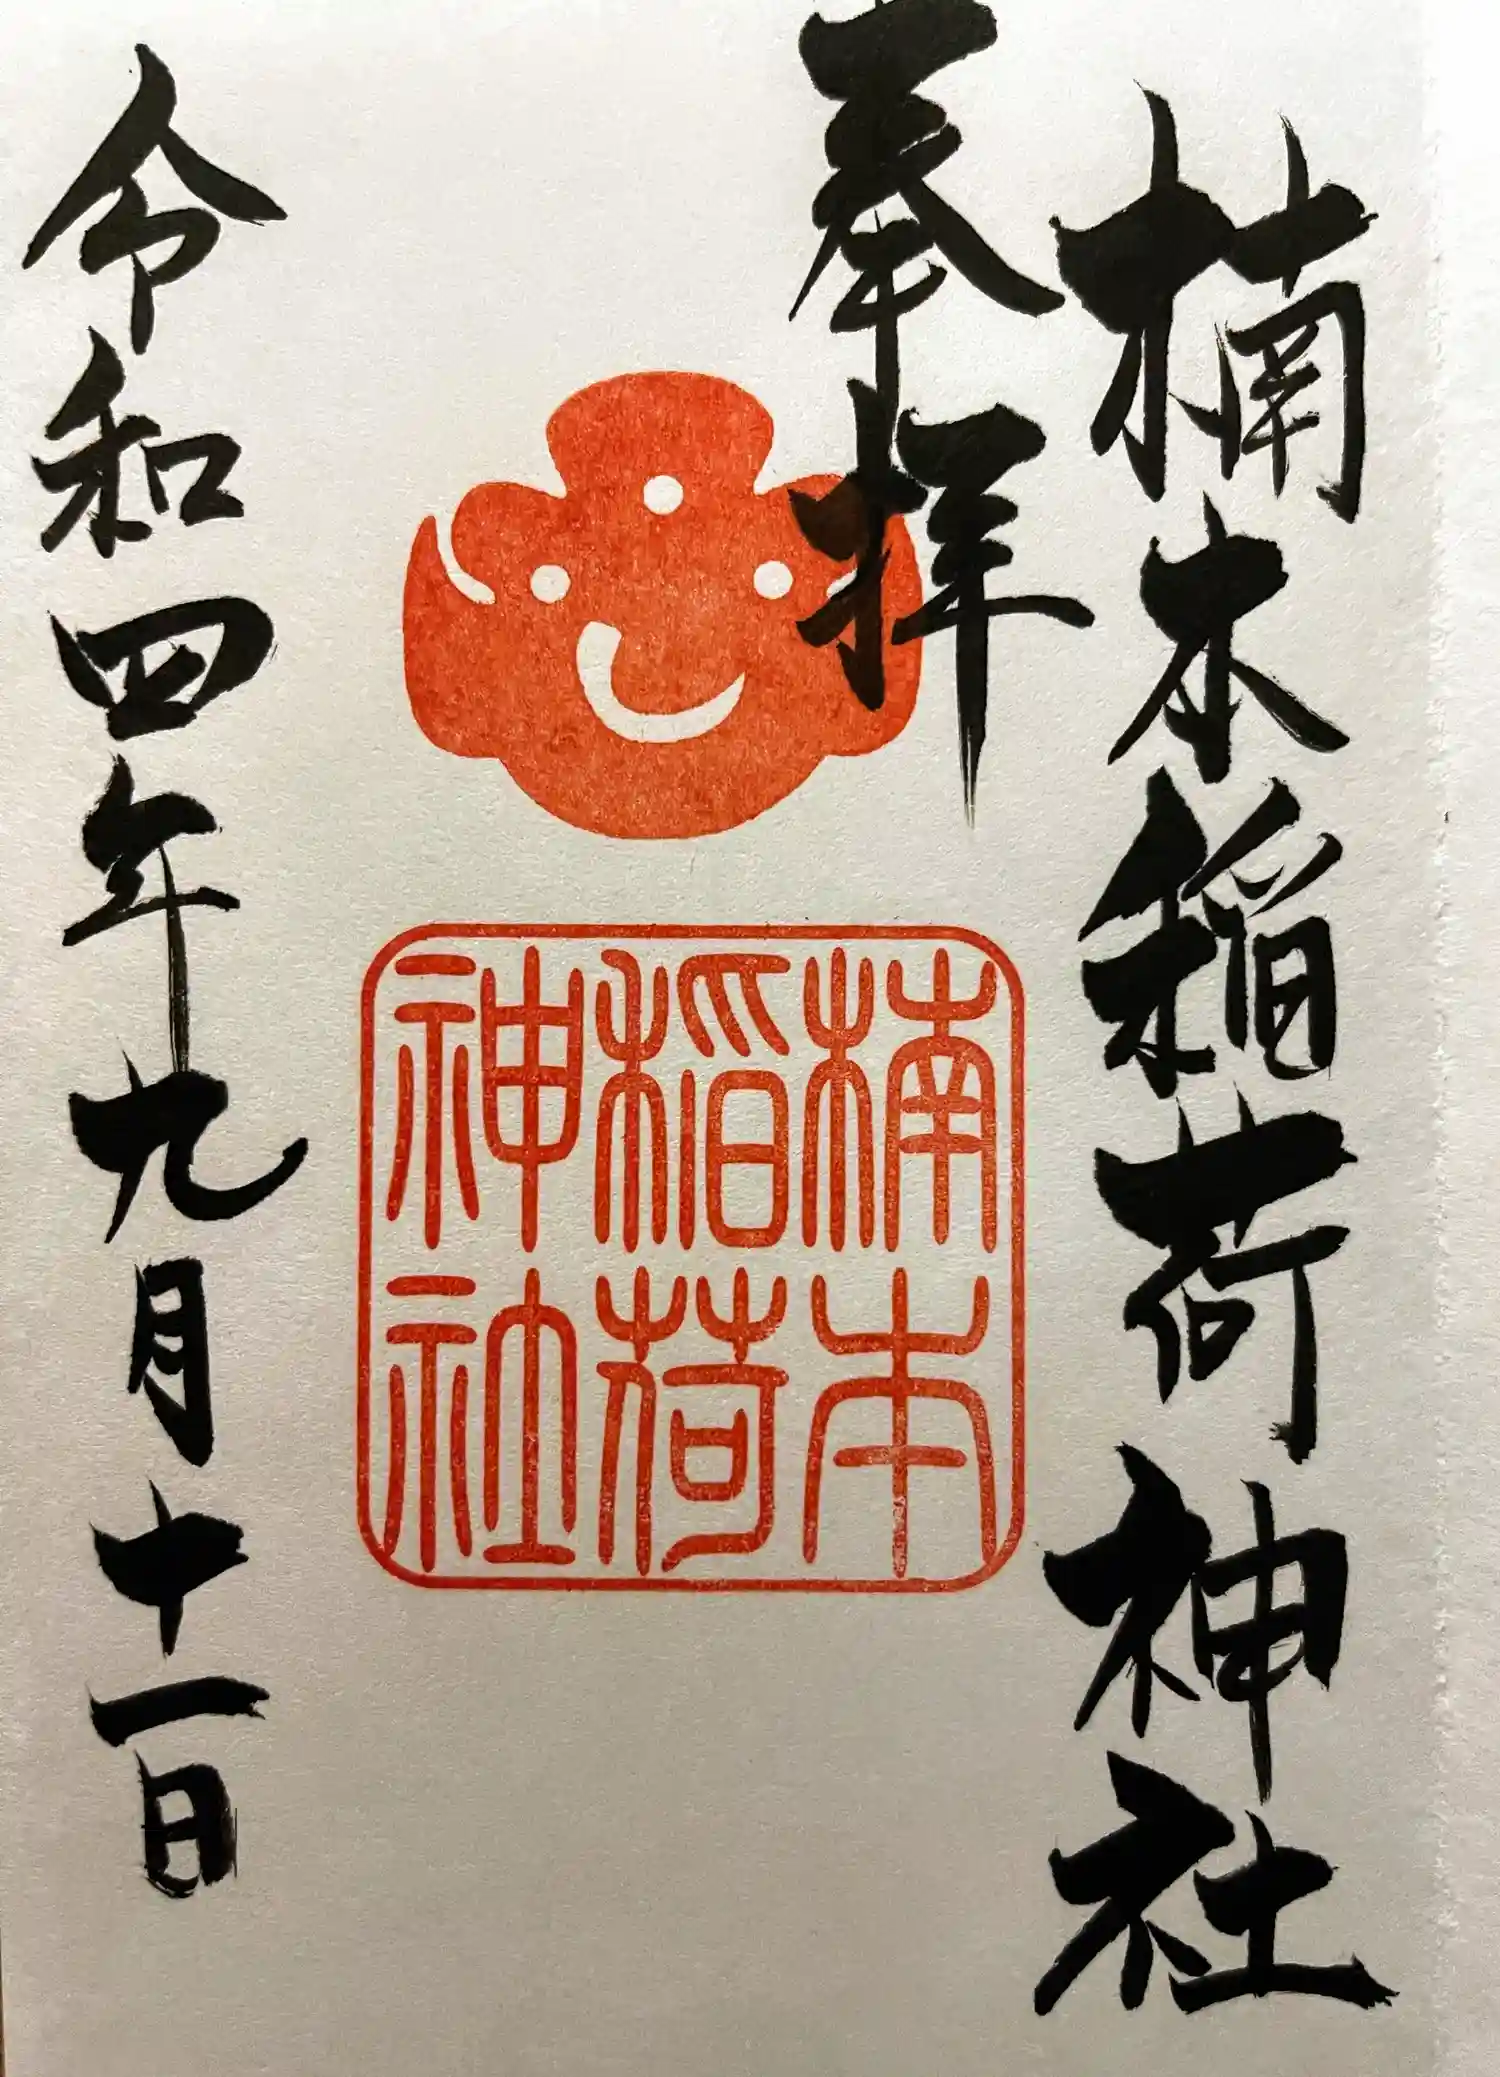 楠本稲荷神社
奉拝
楠本
稲荷
神社
令和四年九月十一日